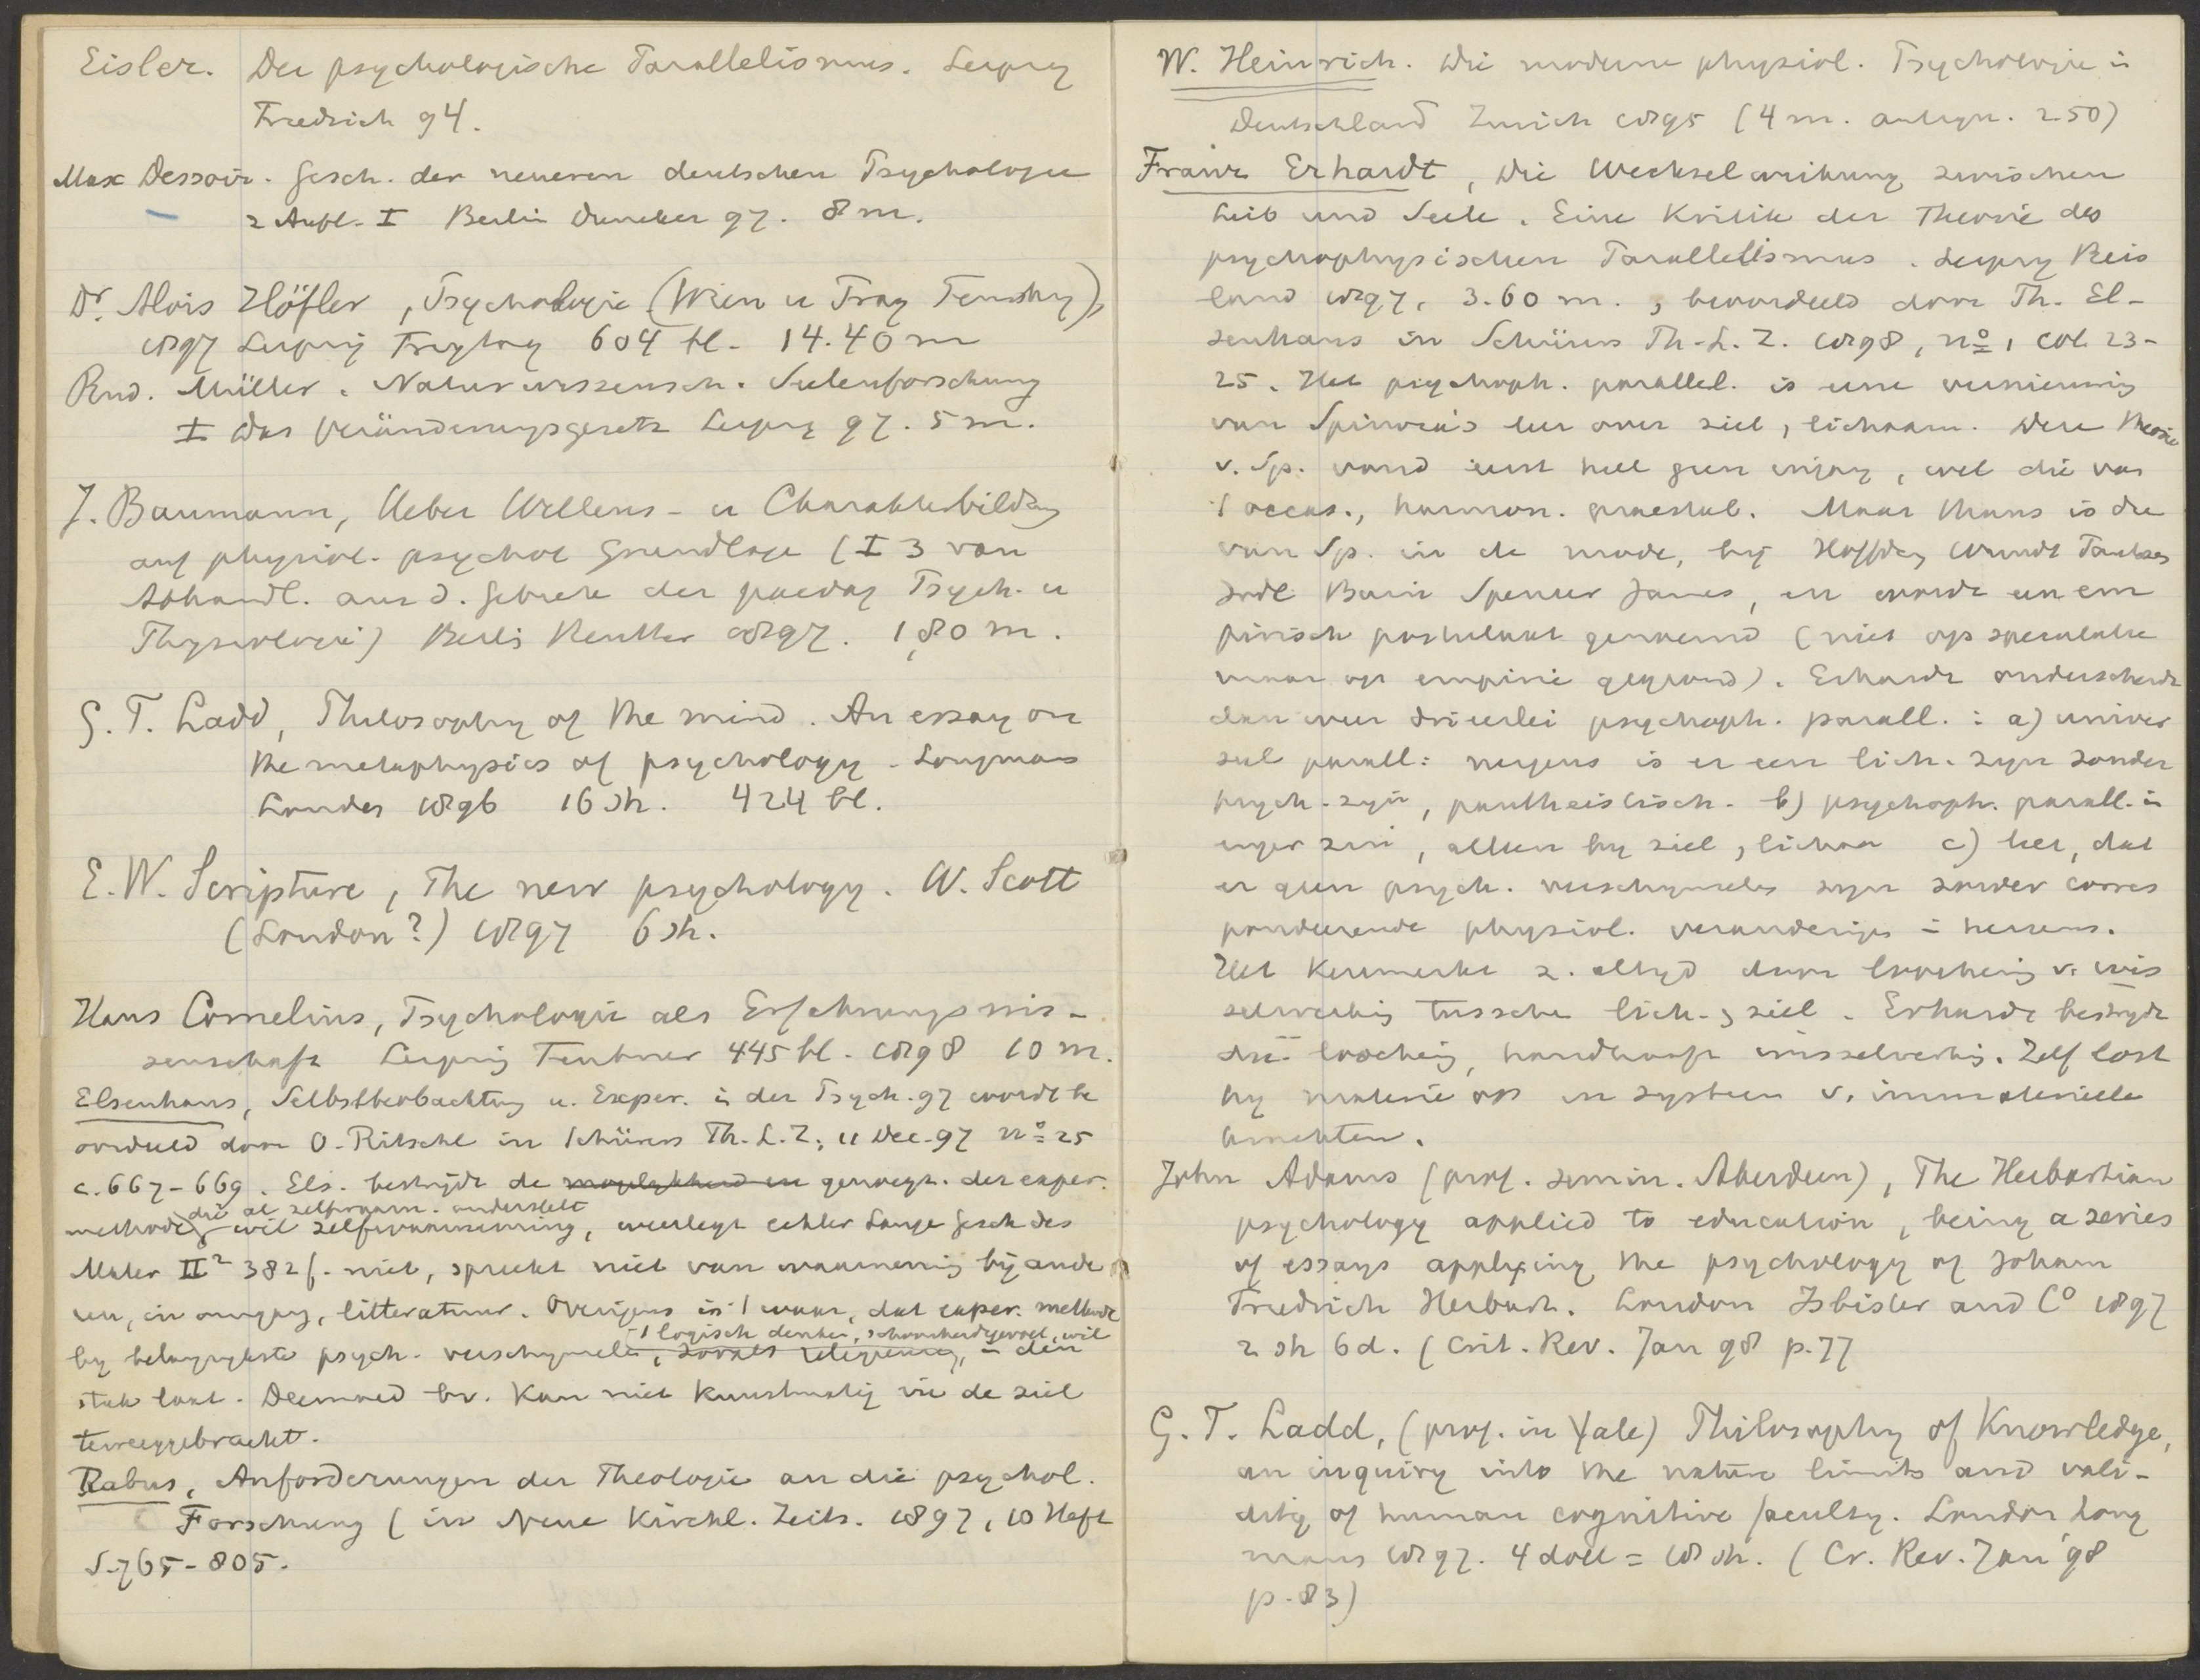 Eisler. Der psychologische Parallelismus. Leipzig
Friedrich 94.
Max Dessoir. Gesch. der neueren deutschen Psychologie
2 Aufl. I Berlin Duncker 97. 8 m.
Dr. Alois Höfler, Psychologie (Wien u Prag Tempsky),
1897 Leipzig Freytag 604 bl. 14.40 m
Rud. Müller. Naturwissensch. Seelenforschung
I Das Veränderungsgesetz Leipzig 97. 5 m.
J. Baumann, Ueber Willens- u Charakterbildung
auf physiol. psychol Grundlage (I 3 van
Abhandl. aus d. Gebiete der paedag Psych. u
Physiologie) Berlin Reuther 1897. 1,80 m.
G. T. Ladd, Philosophy of the mind. An essay on
the metaphysics of psychology. Longmans
London 1896 16 sh. 424 bl.
E. W. Scripture, The new psychology. W. Scott
(London?) 1897 6 sh.
Hans Cornelius, Psychologie als Erfahrungswis-
senschaft Leipzig Teubner 445 bl. 1898 10 m.
Elsenhans, Selbstbeobachtung u. Exper. in der Psych. 97 wordt be
oordeeld door O. Ritschl in Schürers Th. L. Z. 11 Dec. 97 no 25
c. 667-669. Els. bestrijdt de mogelykheid en genoegz. der exper.
die al zelfwaarn. onderstelt
methode, wil zelfwaarneming, weerlegt echter Lange Gesch des
Mater II2 382 f. niet, spreekt niet van waarneming bij ande
ren, in omgang, litteratuur. Overigens is 't waar, dat exper. methode
't logisch denken, schoonheidsgevoel, wil
by belangrykste psych. verschynselen, zooals religieuse, in den
steek laat. Deemoed bv. kan niet kunstmatig in de ziel
teweeggebracht.
Rabus, Anforderungen der Theologie an die psychol.
Forschung (in Neue Kirchl. Zeits. 1897, 10 Heft
S. 765-805.
W. Heinrich. Die moderne physiol. Psychologie in
Deutschland Zurich 1895 (4 m. antiqu. 2.50)
Franz Erhardt, Die Wechselwirkung zwischen
Leib und Seele. Eine Kritik der Theorie des
psychophysischen Parallelismus. Leipzig Reis
land 1897. 3.60 m., beoordeeld door Th. El-
senhans in Schürers Th. L. Z. 1898, no 1 col. 23-
25. Het psychoph. parallel. is eene vernieuwing
van Spinoza's leer over ziel, lichaam. Deze theorie
v. Sp. vond eerst heel geen ingang, wel die van
't occas., harmon. praestab. Maar thans is die
van Sp. in de mode, by Höffding Wundt Paulsen
Jodl Bain Spencer James, en wordt een em
pirisch postulaat genoemd (niet op speculatie
maar op empirie gegrond). Erhardt onderscheidt
dan weer drieerlei psychoph. parall.: a) univer
seel parall: nergens is er een lich. zyn zonder
psych. zyn, pantheistisch. b) psychoph. parall. in
enger zin, alleen by ziel, lichaam c) leer, dat
er geen psych. verschynselen zyn zonder corres
pondeerende physiol. veranderingen in hersens.
Het kenmerkt z. altyd door loochening v. wis
selwerking tussche lich. , ziel. Erhardt bestrydt
die loochening, handhaaft wisselwerking. Zelf lost
hy materie op in systeem v. immaterieele
krachten.
John Adams (prof. semin. Aberdeen), The Herbartian
psychology applied to education, being a series
of essays applying the psychology of Johann
Friedrich Herbart. London Isbister and Co 1897
2 sh 6 d. (Crit. Rev. Jan 98 p. 77
G. T. Ladd, (prof. in Yale) Philosophy of Knowledge,
an inquiry into the nature limits and vali-
dity of human cognitive faculty. London Long
mans 1897. 4 doll = 18 sh. (Cr. Rev. Jan '98
p. 83)